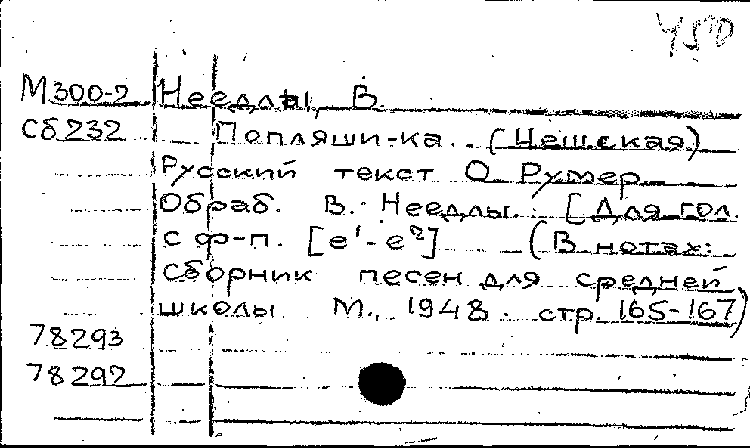 450
М300-2 Неедлы, В.
Сб232 Попляши-ка. (Чешская)
Русский текст О. Румер
Обраб. В. Неедлы. [Для гол.
с ф-п. [e¹-e²] (В нотах:
Сборник песен для средней
школы М., 1948. стр. 165-167)
78293
78292